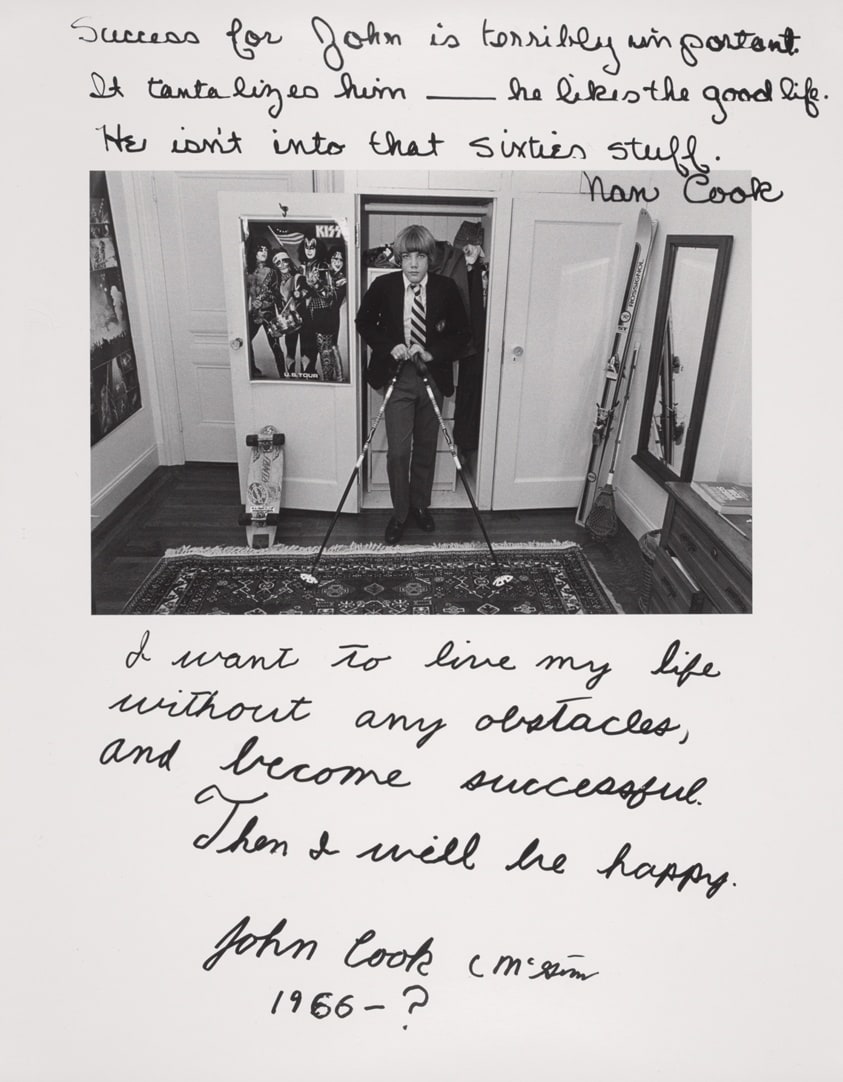 Success for John is terribly important.
It tantalizes him — he likes the good life.
He isn't into that sixties stuff.
Nan Cook
KISS
U.S. TOUR
ROSSIGNOL
I want to live my life
without any obstacles,
and become successful.
Then I will be happy.
John Cook
1966 - ?